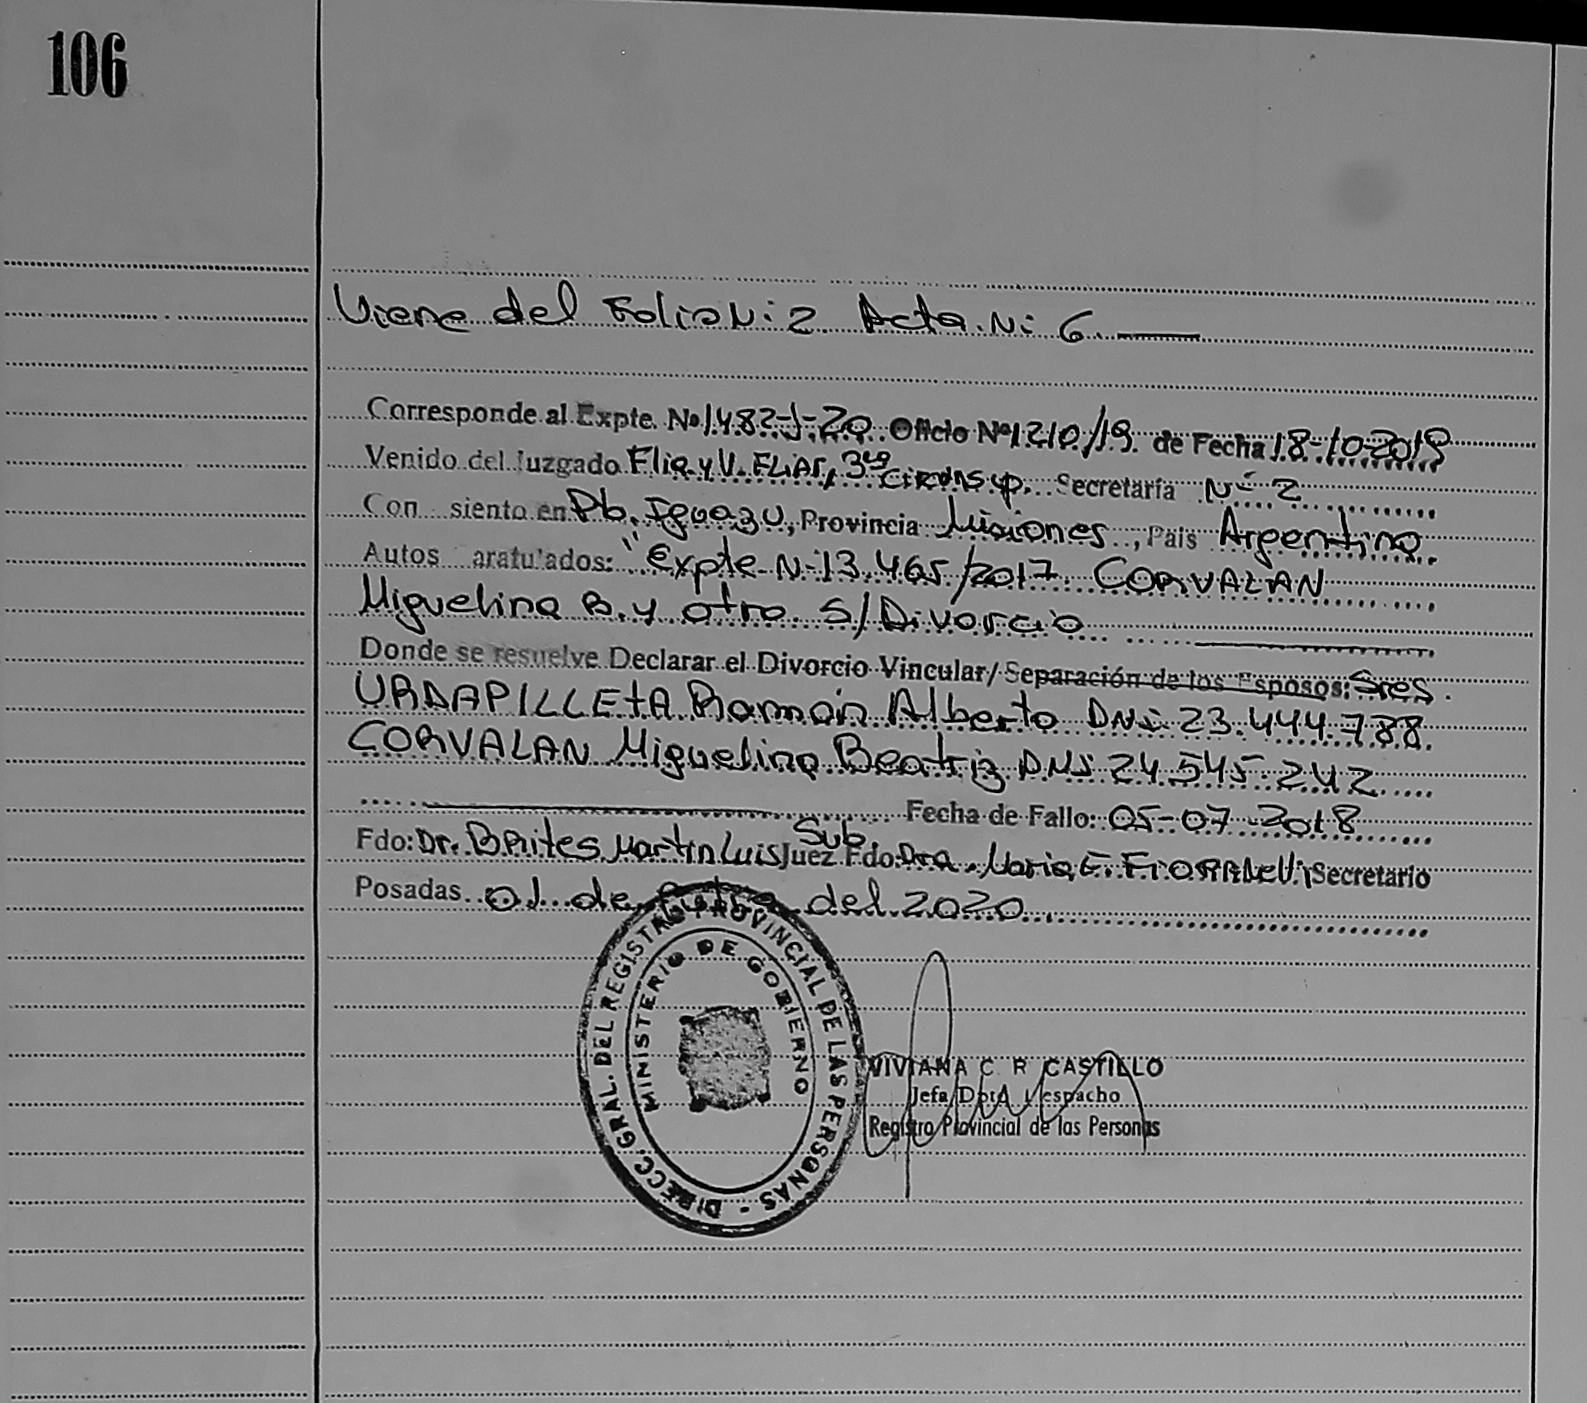 106
Viene del Folio N: 2 Acta N: 6
Corresponde al Expte. Nº 1482-J-20 Oficio Nº 1210/19 de Fecha 18-10-2019
Venido del Juzgado Flia y V. FLiar, 3ra Circunscp. Secretaría Nº 2
Con siento en Pto. Iguazu, Provincia Misiones, Pais Argentina.
Autos aratu'ados: "Expte N:13.465/2017 CORVALAN
Miguelina B. y otro S/ Divorcio
Donde se resuelve Declarar el Divorcio Vincular/ Separación de los Esposos: Sres.
URDAPILLETA Ramón Alberto DNI: 23.444.788
CORVALAN Miguelina Beatriz DNI 24.545.242
Fecha de Fallo: 05-07-2018
Sub
Fdo: Dr. Brites Martin Luis Juez Fdo: Dra. Maria E. Secretario
Posadas 01 de del 2020
DIRECC. GRAL. DEL REGISTRO PROVINCIAL DE LAS PERSONAS -
MINISTERIO DE GOBIERNO
VIVIANA C. R. CASTILLO
Jefa Dpto Despacho
Registro Provincial de las Personas